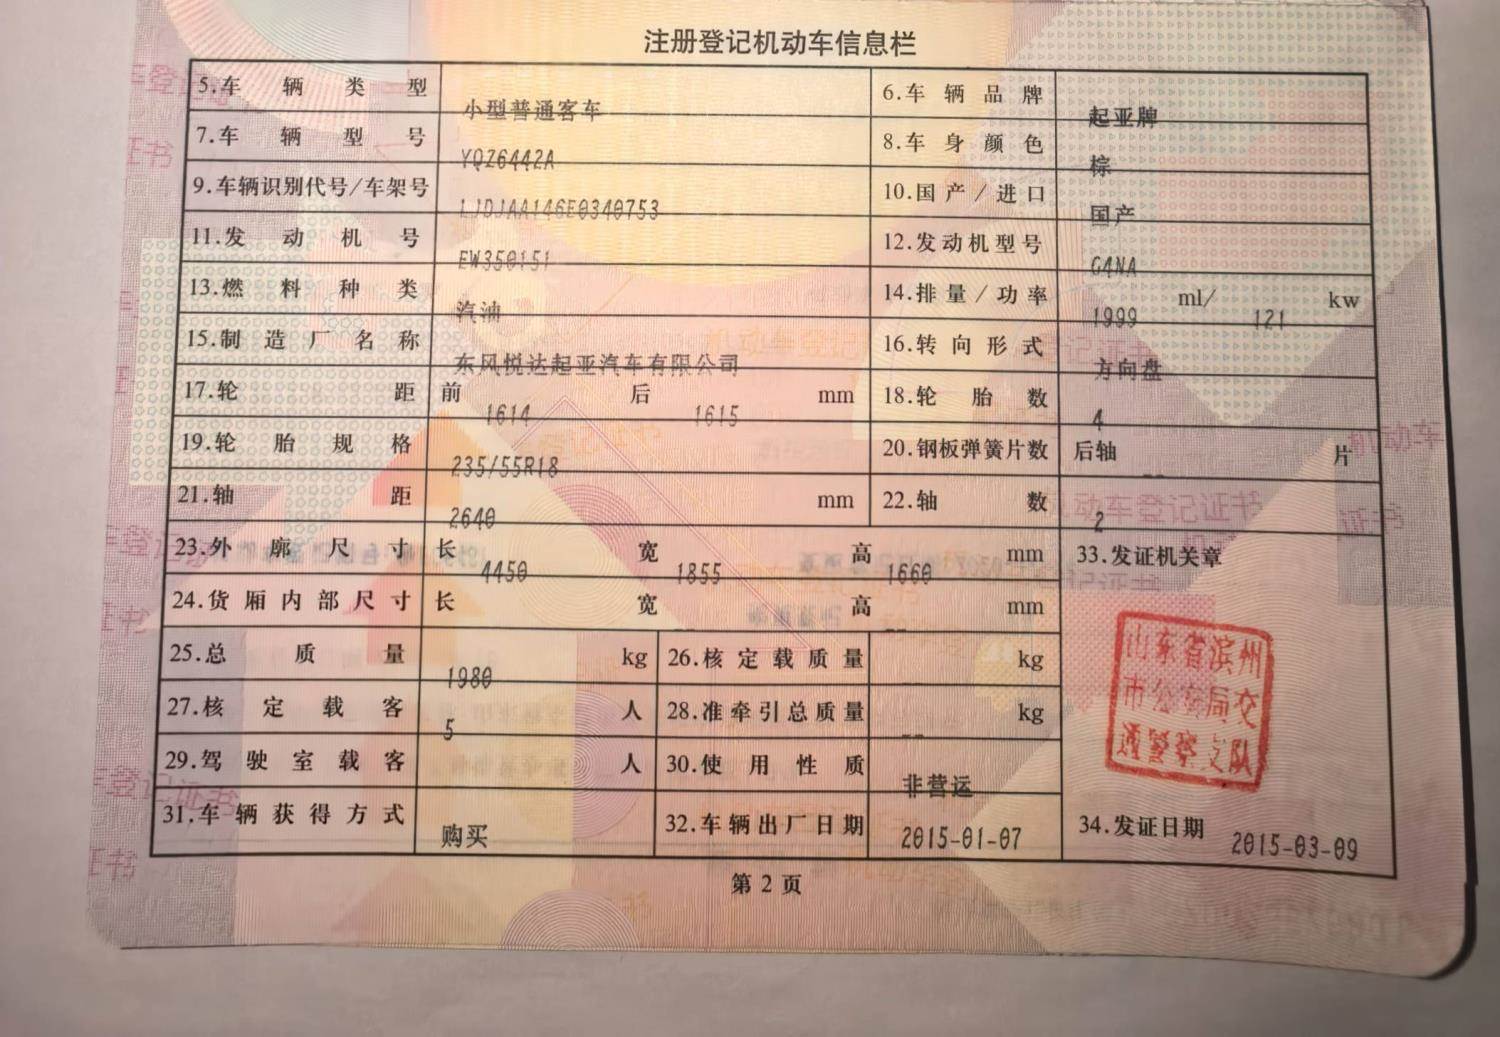 注册登记机动车信息栏
5.车辆类型 小型普通客车 6.车辆品牌 起亚牌
7.车辆型号 YQZ6442A 8.车身颜色 棕
9.车辆识别代号/车架号 LJDJAA146E0340753 10.国产/进口 国产
11.发动机号 EW350151 12.发动机型号 G4NA
13.燃料种类 汽油 14.排量/功率 1999 ml/ 121 kw
15.制造厂名称 东风悦达起亚汽车有限公司 16.转向形式 方向盘
17.轮距 前 1614 后 1615 mm 18.轮胎数 4
19.轮胎规格 235/55R18 20.钢板弹簧片数 后轴 -- 片
21.轴距 2640 mm 22.轴数 2
23.外廓尺寸 长 4450 宽 1855 高 1660 mm 33.发证机关章
24.货厢内部尺寸 长 宽 -- 高 -- mm
25.总质量 1980 kg 26.核定载质量 kg
27.核定载客 5 人 28.准牵引总质量 -- kg
29.驾驶室载客 人 30.使用性质 非营运
31.车辆获得方式 购买 32.车辆出厂日期 2015-01-07 34.发证日期 2015-03-09
山东省滨州
市公安局交
通警察支队
第2页